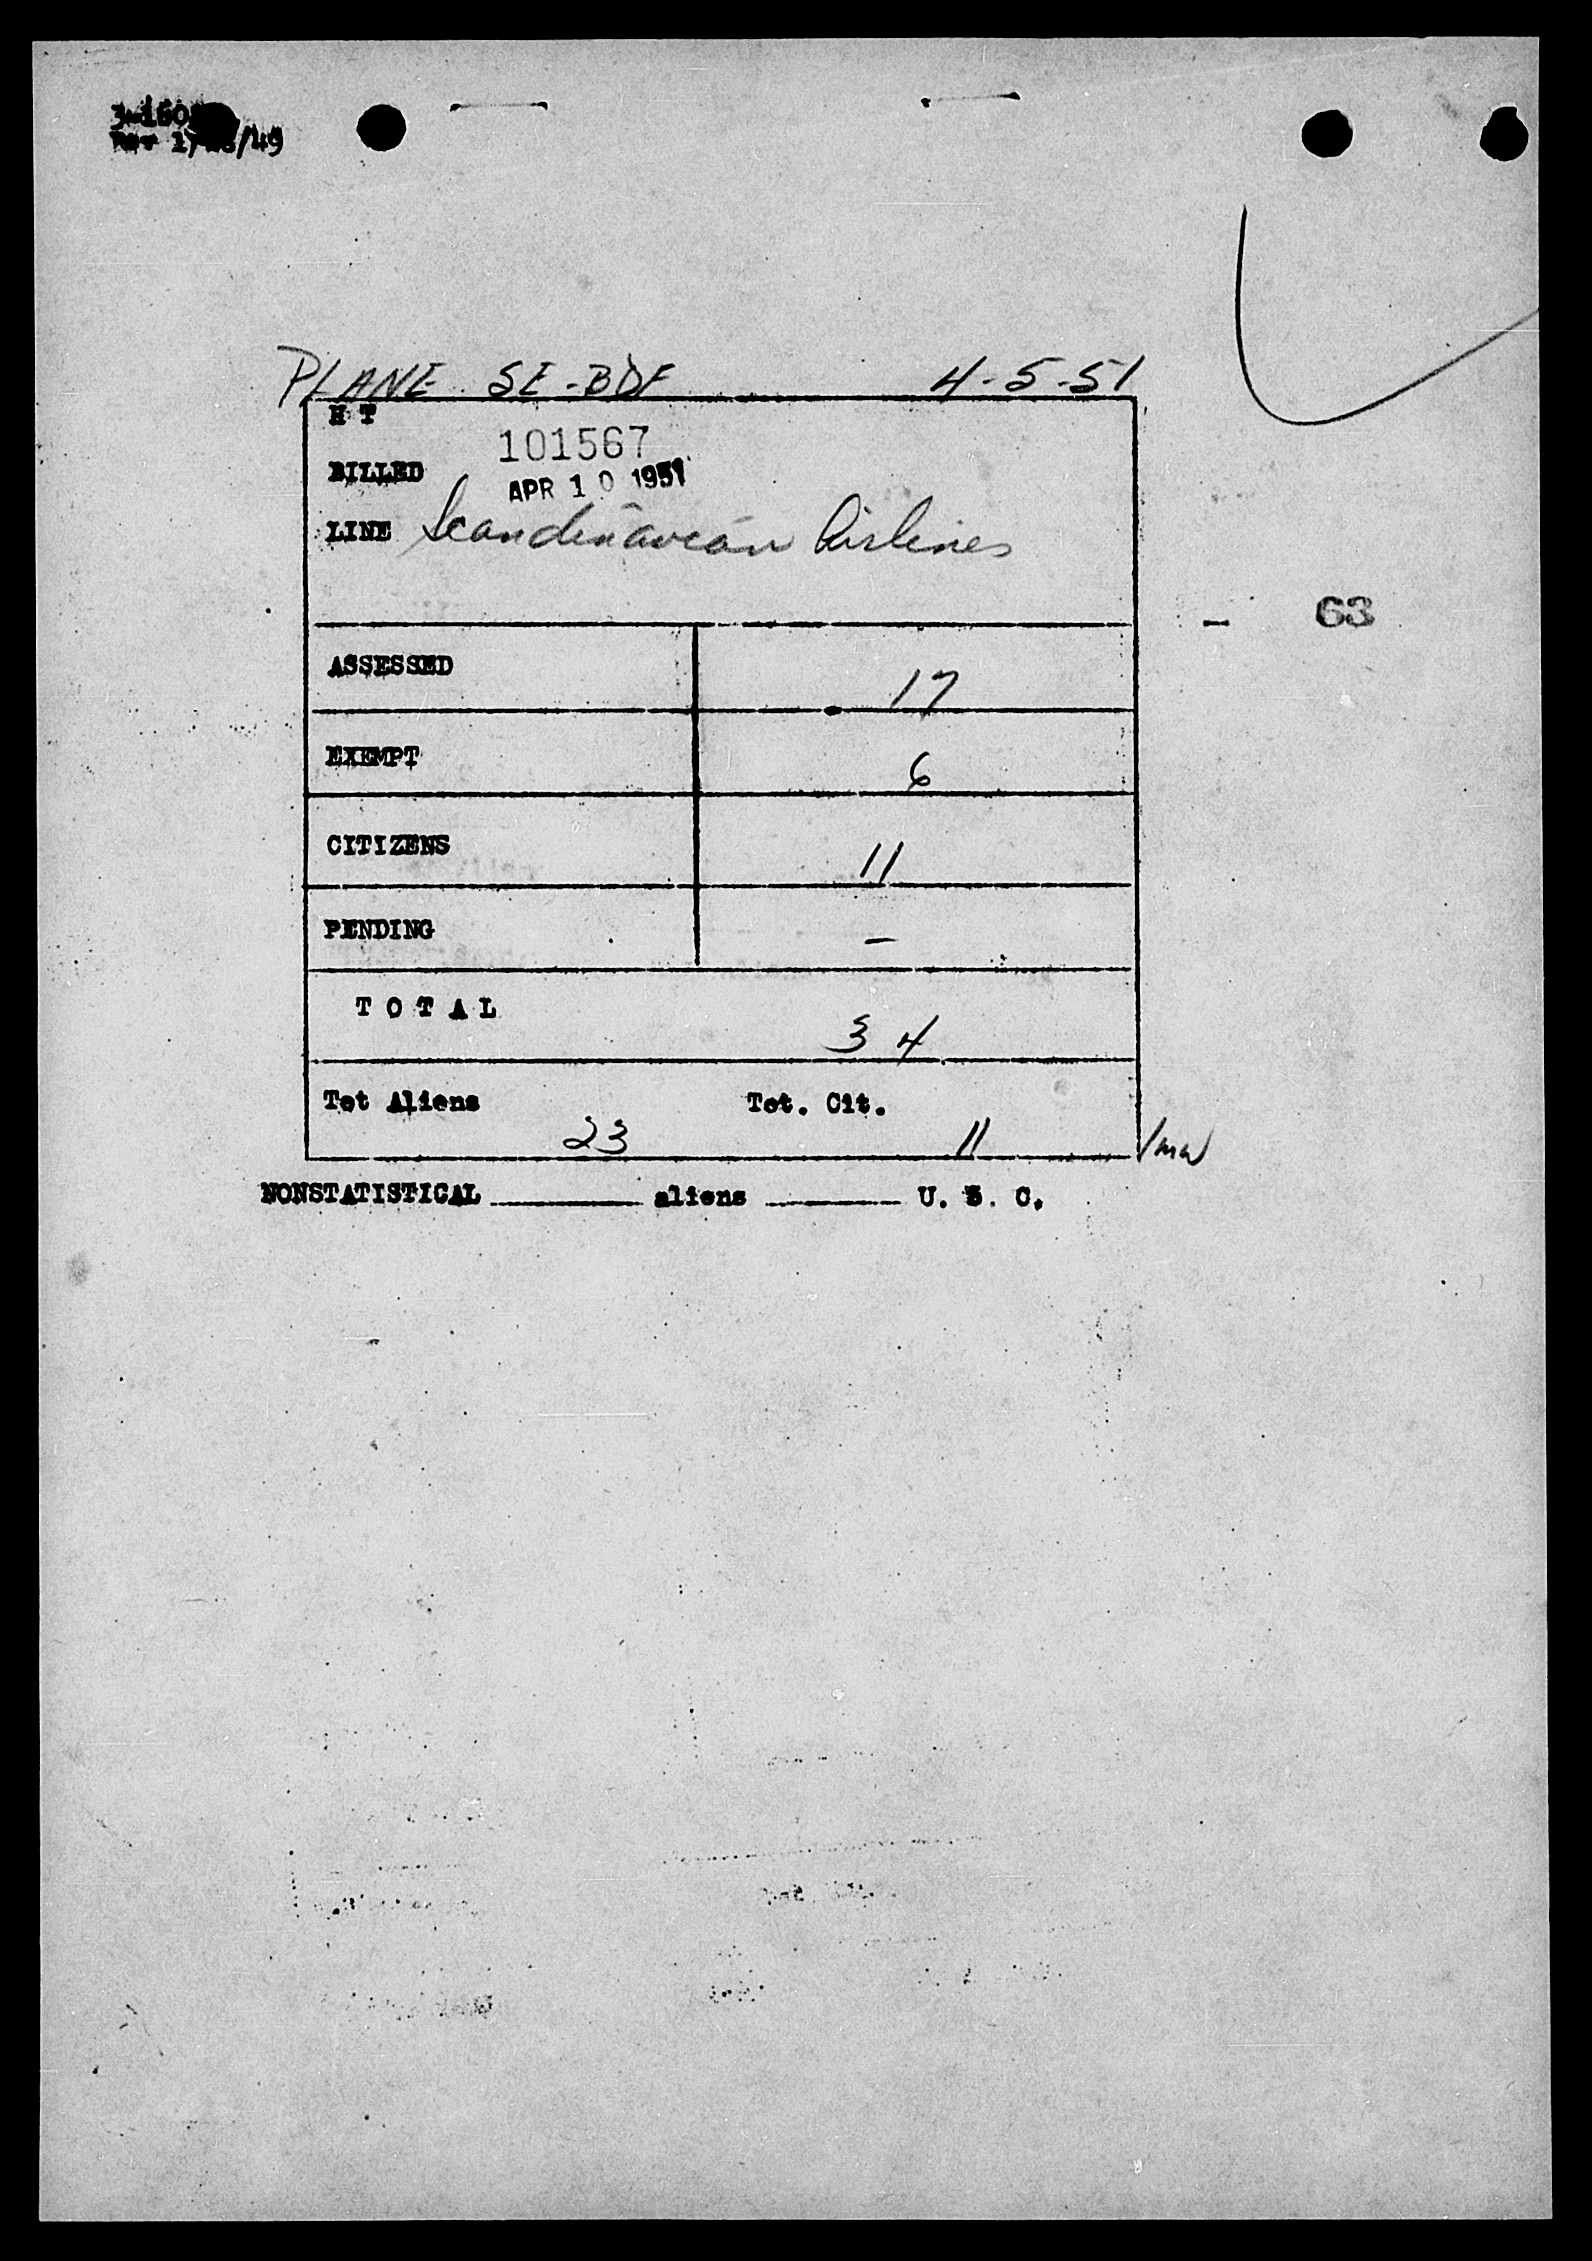 PLANE SE-BDF 4-5-51
H T
101567
BILLED
APR 10 1951
LINE Scandinavian Airlines
- 63
ASSESSED 17
EXEMPT 6
CITIZENS 11
PENDING -
T O T A L 34
Tot Aliens Tot. Cit.
23 11 /mw
NONSTATISTICAL ________ aliens ________ U. S. C.